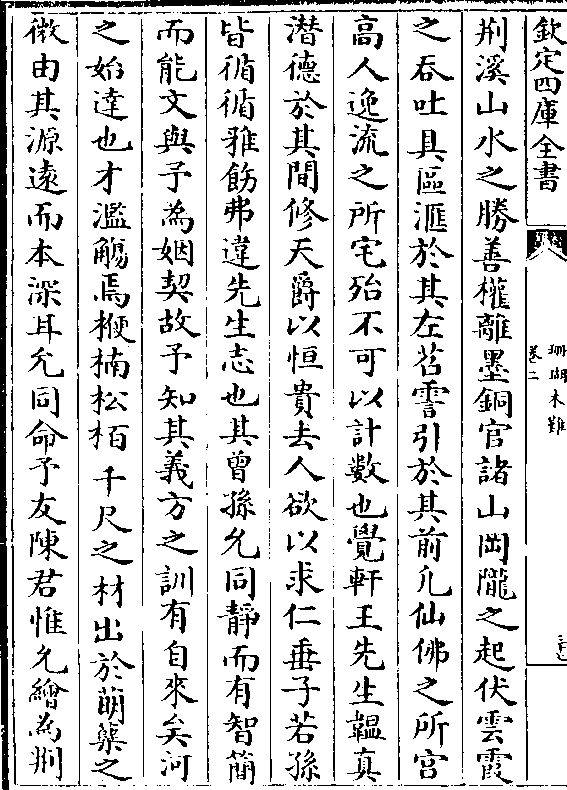 欽定四庫全書
珊瑚木難
卷二
荆溪山水之勝善權離墨銅官諸山岡隴之起伏雲霞
之吞吐具區滙於其左苕霅引於其前凡仙佛之所宮
高人逸流之所宅殆不可以計數也覺軒王先生韞真
潛德於其間修天爵以恒貴去人欲以求仁垂子若孫
皆循循雅飭弗違先生志也其曾孫允同静而有智簡
而能文與予為姻契故予知其義方之訓有自來矣河
之始達也才濫觴焉楩楠松栢千尺之材出於萌櫱之
微由其源逺而本深耳允同命予友陳君惟允繪為荆